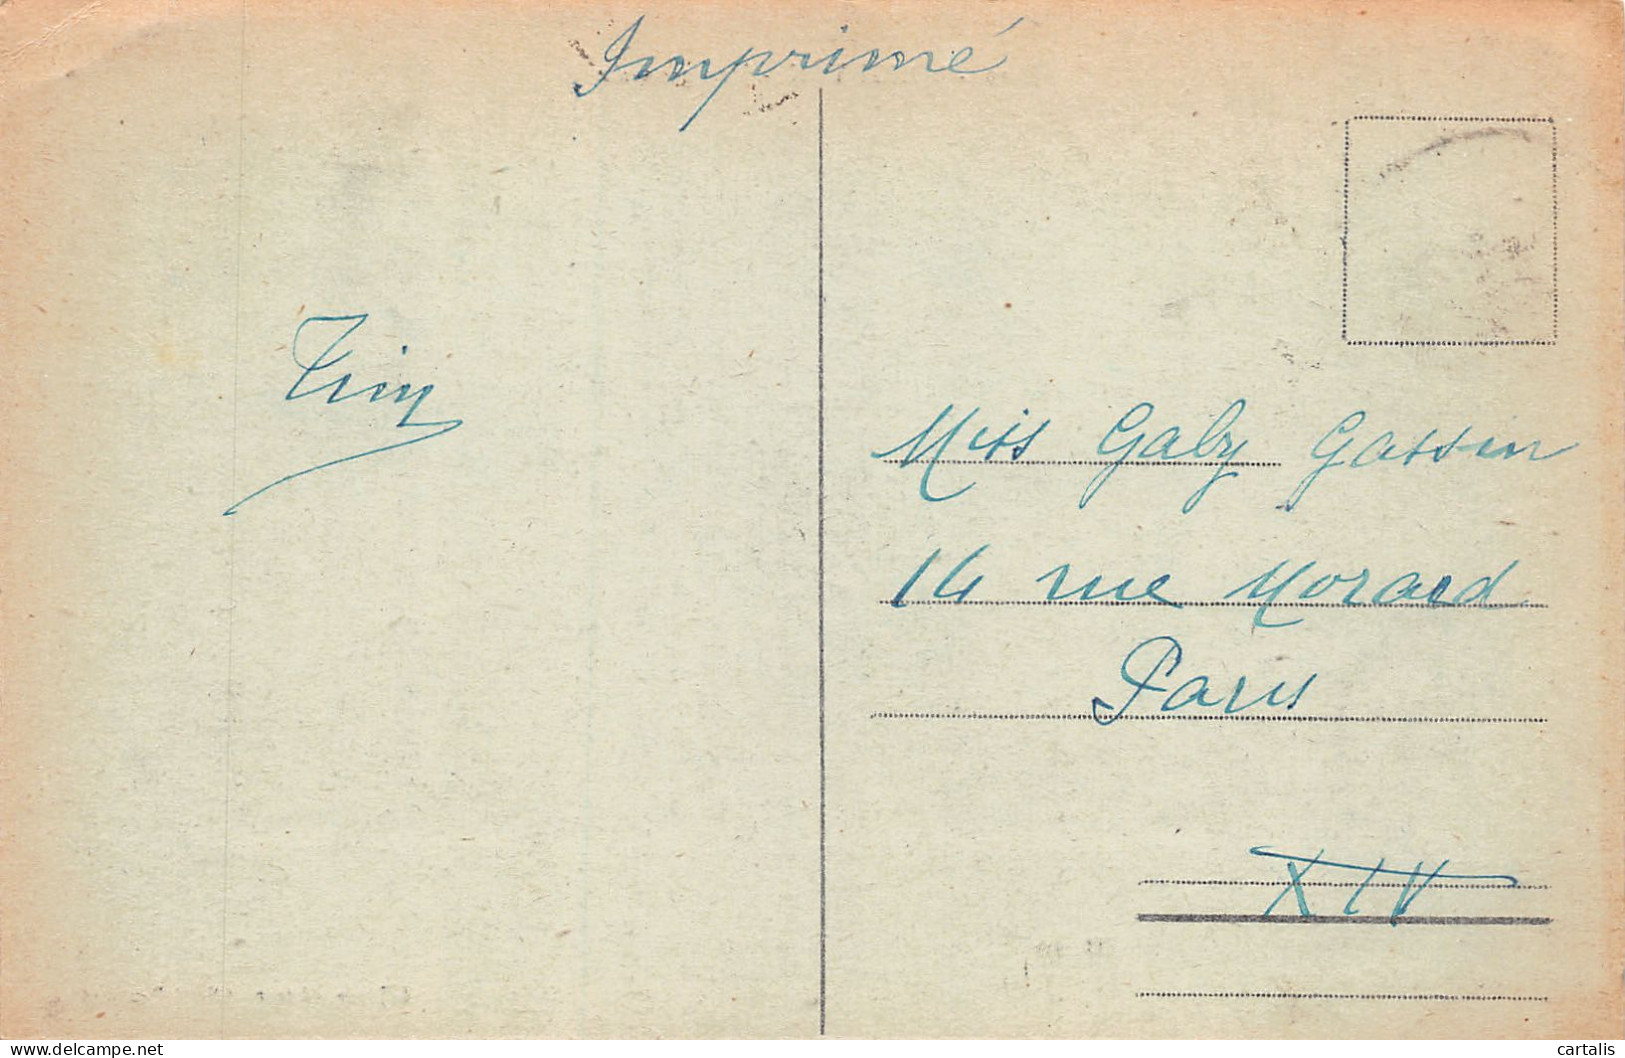 Imprimé
Miss Gaby Gassin
14 rue Morard
Paris
XIV
www.delcampe.net
cartalis